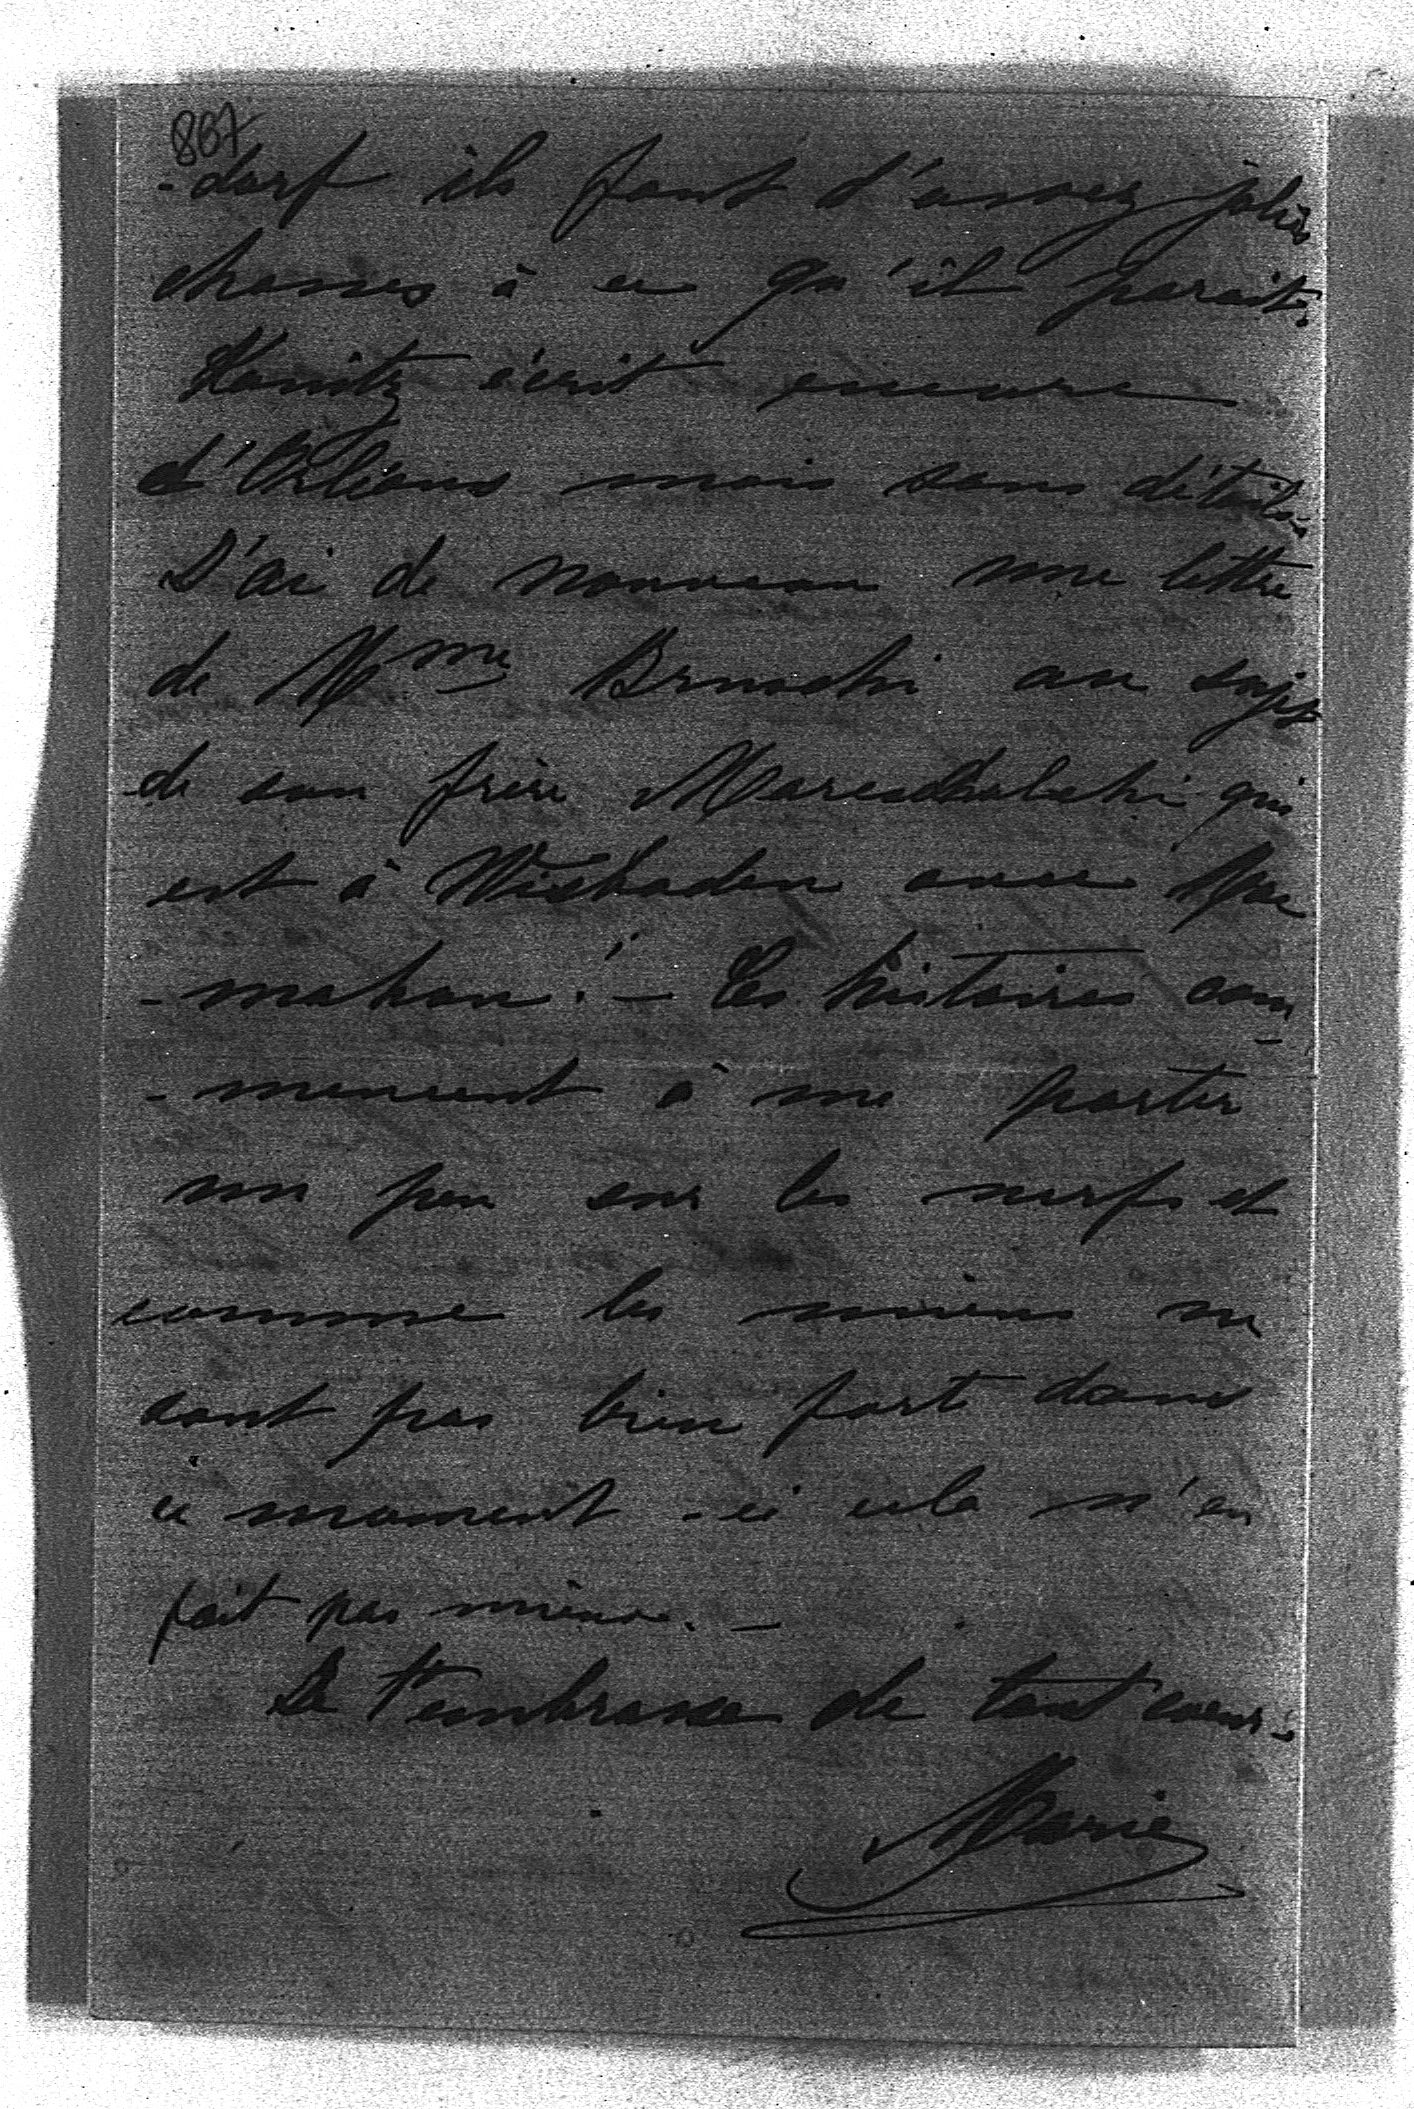 887
-dorf ils font d'assez jolies
chasses à ce qu'il parait.
Kanitz écrit encore
d'Orléans mais sans détails.
J'ai de nouveau une lettre
de Mme Bruschi au sujet
de son frère Marescalchi qui
est à Wiesbaden avec Mac
-mahon! - Ces histoires com
-mencent à me porter
un peu sur les nerfs et
comme les miens ne
sont pas bien fort dans
ce moment-ci cela n'en
fait pas mieux. -
Je t'embrasse de tout coeur.
Marie